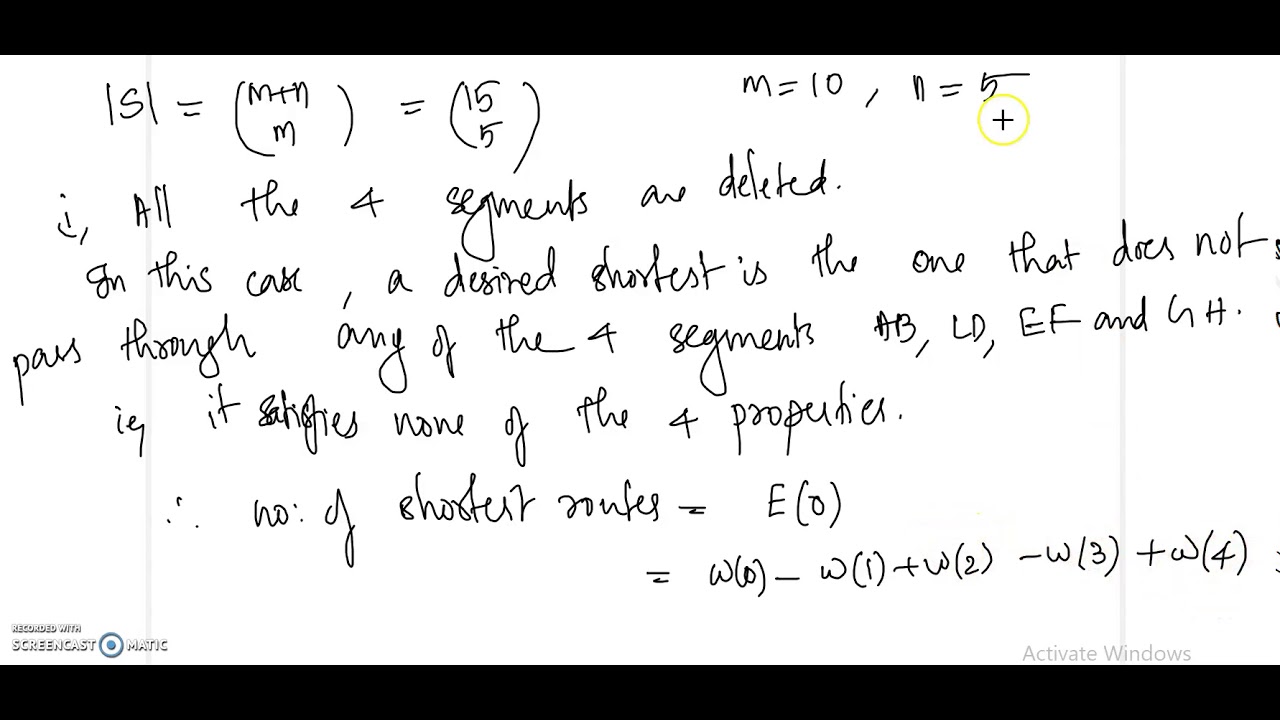 |S| = (m+n m) = (15 5) m = 10 , n = 5
i, All the 4 segments are deleted.
In this case , a desired shortest is the one that does not
pass through any of the 4 segments AB, CD, EF and GH.
ie, it satisfies none of the 4 properties.
∴ no: of shortest routes = E(0)
= ω(0) - ω(1) + ω(2) - ω(3) + ω(4)
RECORDED WITH
SCREENCAST MATIC
Activate Windows